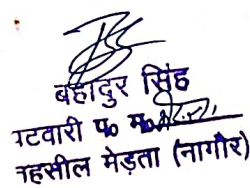 बहादुर सिंह
पटवारी प० म०
तहसील मेड़ता (नागौर)